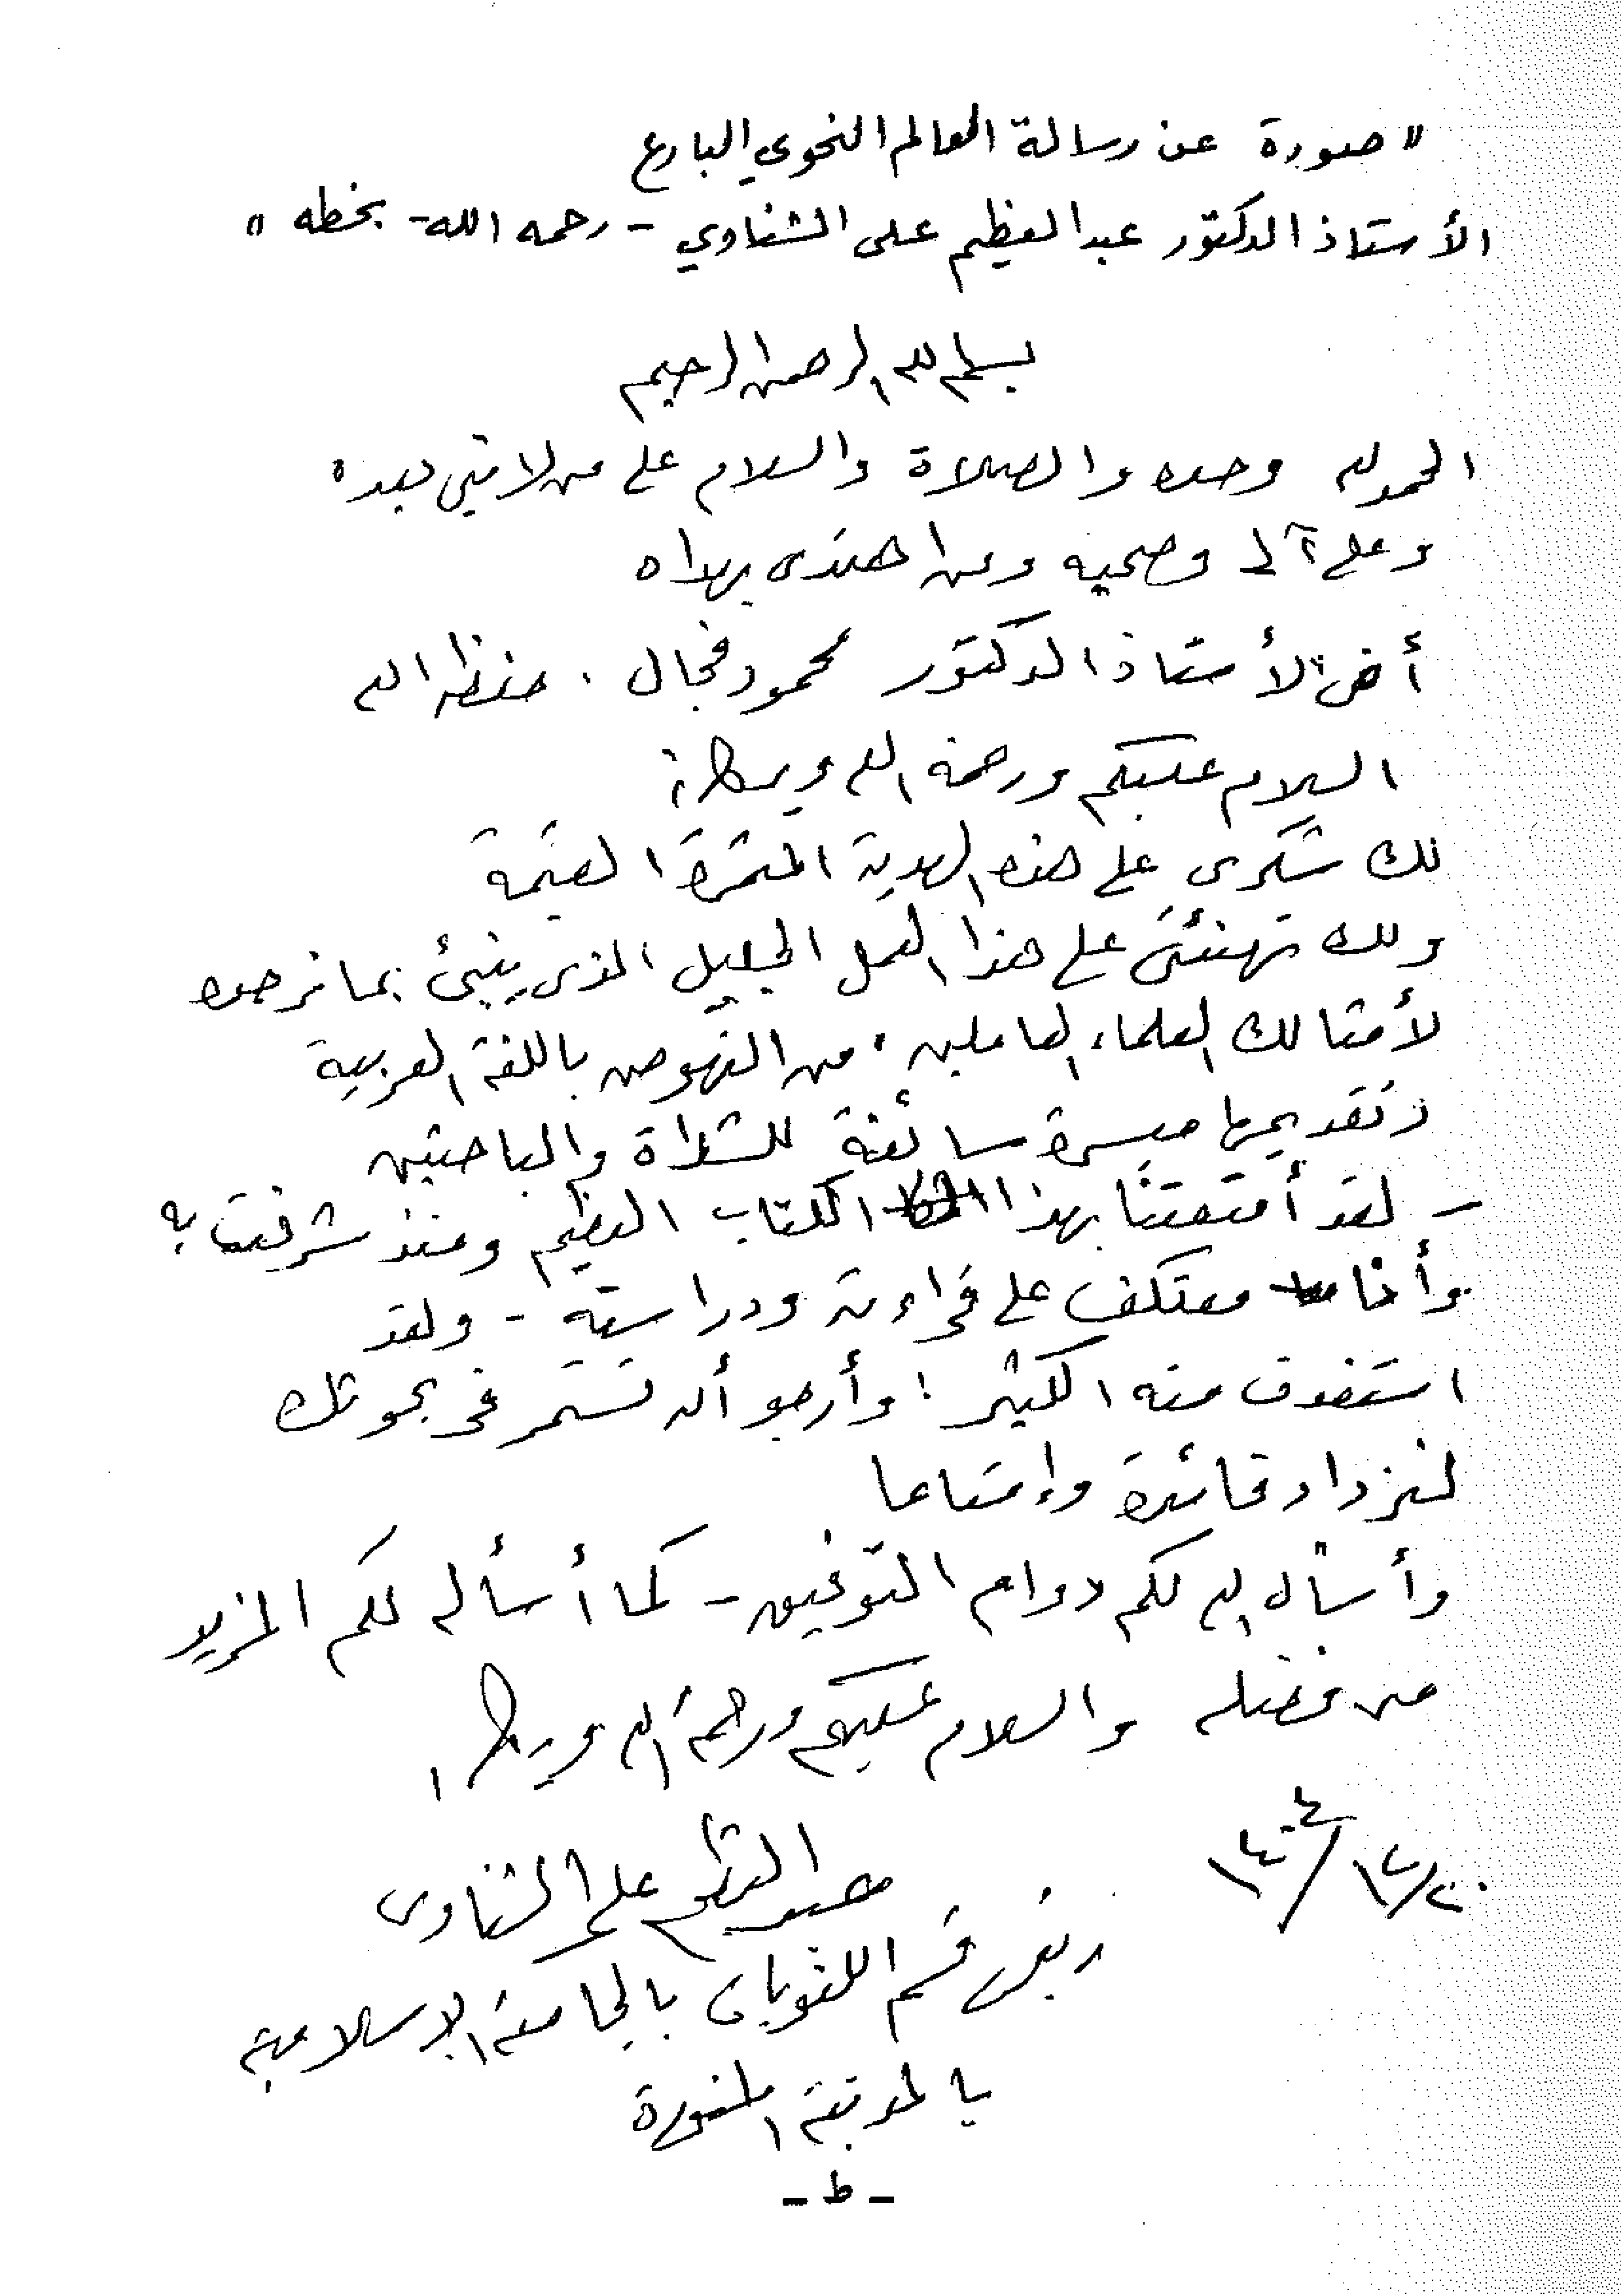 " صورة عن رسالة العالم النحوي البارع
الأستاذ الدكتور عبد العظيم على الشناوي - رحمه الله - بخطه "
بسم الله الرحمن الرحيم
الحمد لله وحده والصلاة والسلام على من لا نبي بعده
وعلى آله وصحبه ومن اهتدى بهداه
أخى الأستاذ الدكتور محمود فجال . حفظه الله
السلام عليكم ورحمة الله وبركاته
لك شكرى على هذه الهدية المثمرة القيمة
ولك تهنئتى على هذا العمل الجليل الذى ينبئ بما نرجوه
لأمثالك العلماء العاملين ، من النهوض باللغة العربية
وتقديمها ميسرة سائغة للشداة والباحثين
- لقد أمتعتنا بهذا الكتاب العظيم ومنذ شرفت به
وأنا معتكف على قراءته ودراسته - ولقد
استفدت منه الكثير ؛ وأرجو أن تستمر فى بحوثك
لنزداد فائدة وإمتاعا
وأسأل الله لكم دوام التوفيق - كما أسأله لكم المزيد
من فضله والسلام عليكم ورحمة الله وبركاته
٢٠/١٢/١٤٠٤
عبد العظيم على الشناوى
رئيس قسم اللغويات بالجامعة الإسلامية
بالمدينة المنورة
- ط -